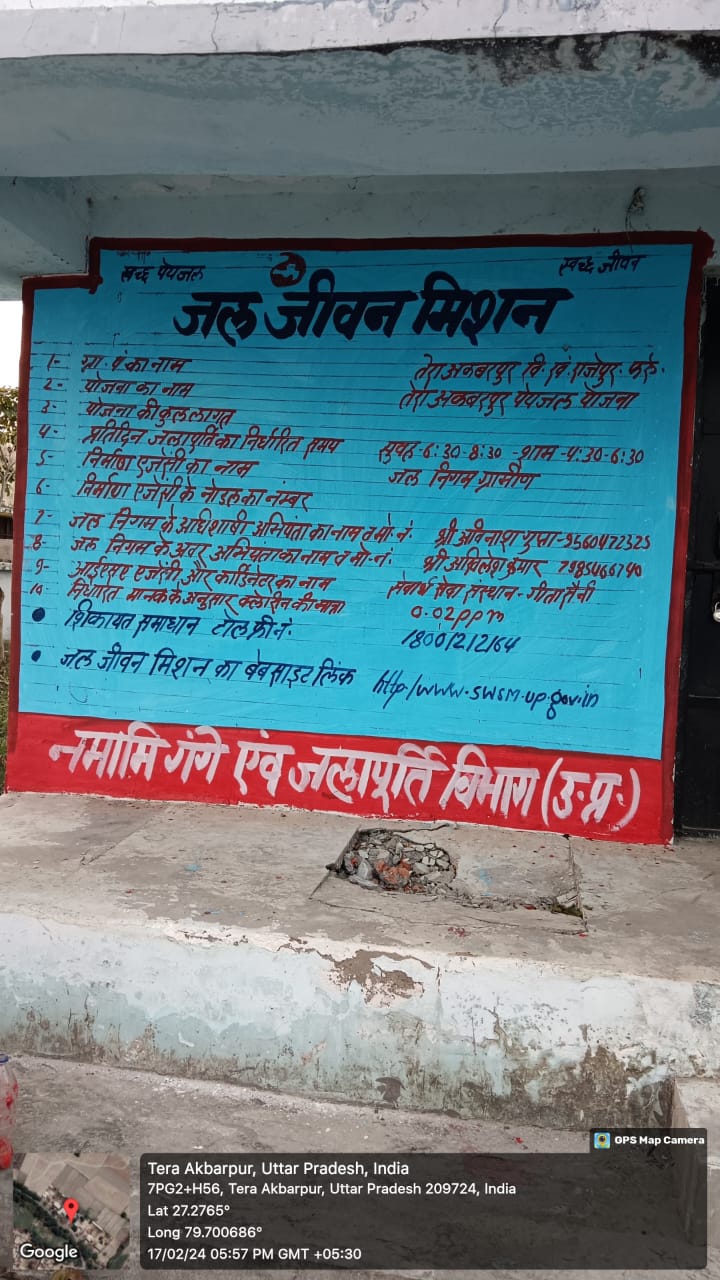 स्वच्छ पेयजल स्वच्छ जीवन
जल जीवन मिशन
1- ग्रा. पं. का नाम तेरा अकबरपुर वि. खं. राजेपुर. फर्रु.
2- योजना का नाम तेरा अकबरपुर पेयजल योजना
3- योजना की कुल लागत
4- प्रतिदिन जलापूर्ति का निर्धारित समय सुबह-6:30-8:30 -शाम-4:30-6:30
5- निर्माण एजेंसी का नाम जल निगम ग्रामीण
6- निर्माण एजेंसी के नोडल का नंम्बर
7- जल निगम के अधिशाषी अभियंता का नाम व मो. नं. श्री अविनाश गुप्ता-9560472325
8- जल निगम के अवर अभियंता का नाम व मो. नं. श्री अखिलेश कुमार 7985466740
9- आईएसए एजेंसी और कार्डिनेटर का नाम सेवार्थ सेवा संस्थान - गीता सैनी
10- निर्धारित मानक के अनुसार क्लोरीन की मात्रा 0.02ppm
• शिकायत समाधान टोल फ्री नं. 18001212164
• जल जीवन मिशन का बेबसाइट लिंक http:/www.swsm.up.gov.in
नमामि गंगे एंव जलापूर्ति विभाग (उ.प्र.)
GPS Map Camera
Tera Akbarpur, Uttar Pradesh, India
7PG2+H56, Tera Akbarpur, Uttar Pradesh 209724, India
Lat 27.2765°
Long 79.700686°
17/02/24 05:57 PM GMT +05:30
Google